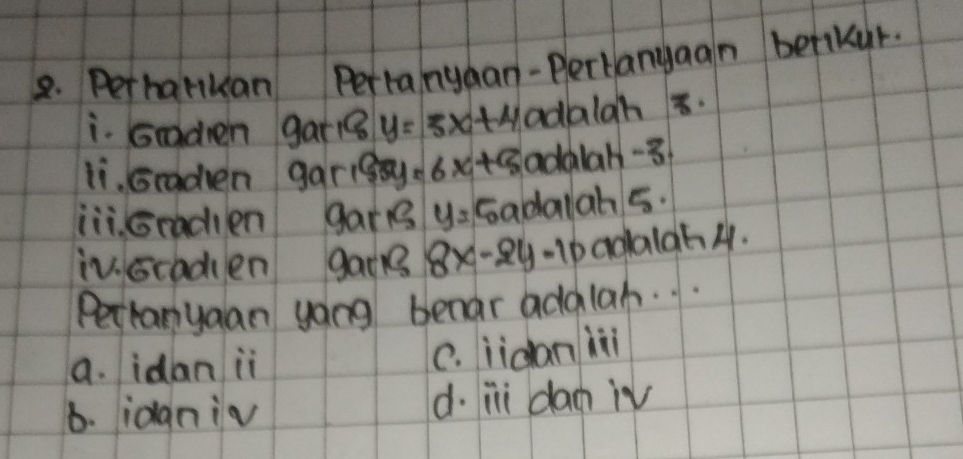 2. Perhatikan Pertanyaan-Pertanyaan berikut.
i. Gradien garis y = 3x+4 adalah 3.
ii. Gradien garis 2y = 6x+3 adalah -3
iii. Gradien garis y = 5 adalah 5.
iv. Gradien garis 8x-2y-10 adalah 4.
Pertanyaan yang benar adalah...
a. i dan ii c. ii dan iii
b. i dan iv d. iii dan iv